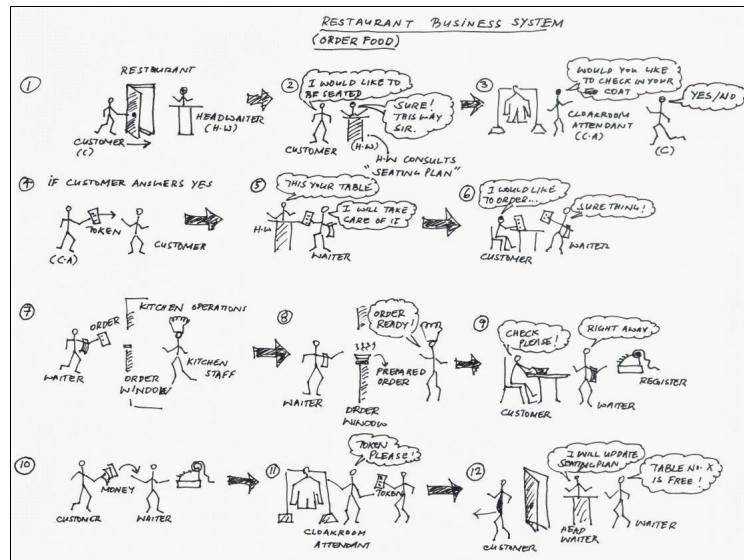 RESTAURANT BUSINESS SYSTEM
(ORDER FOOD)
1
RESTAURANT
CUSTOMER
(C)
HEADWAITER
(H.W)
2
I WOULD LIKE TO
BE SEATED
SURE!
THIS WAY
SIR.
CUSTOMER
(H.W)
H.W CONSULTS
"SEATING PLAN"
3
WOULD YOU LIKE
TO CHECK IN YOUR
COAT
YES/NO
CLOAKROOM
ATTENDANT
(C.A)
(C)
4
IF CUSTOMER ANSWERS YES
TOKEN
(C.A)
CUSTOMER
5
THIS YOUR TABLE
I WILL TAKE
CARE OF IT
H.W
WAITER
6
I WOULD LIKE
TO ORDER...
SURE THING!
CUSTOMER
WAITER
7
KITCHEN OPERATIONS
ORDER
WAITER
ORDER
WINDOW
KITCHEN
STAFF
8
ORDER
READY!
WAITER
PREPARED
ORDER
ORDER
WINDOW
9
CHECK
PLEASE!
RIGHT AWAY
CUSTOMER
WAITER
REGISTER
10
MONEY
CUSTOMER
WAITER
11
TOKEN
PLEASE!
TOKEN
CLOAKROOM
ATTENDANT
12
I WILL UPDATE
SEATING PLAN
TABLE NO. X
IS FREE!
CUSTOMER
HEAD
WAITER
WAITER